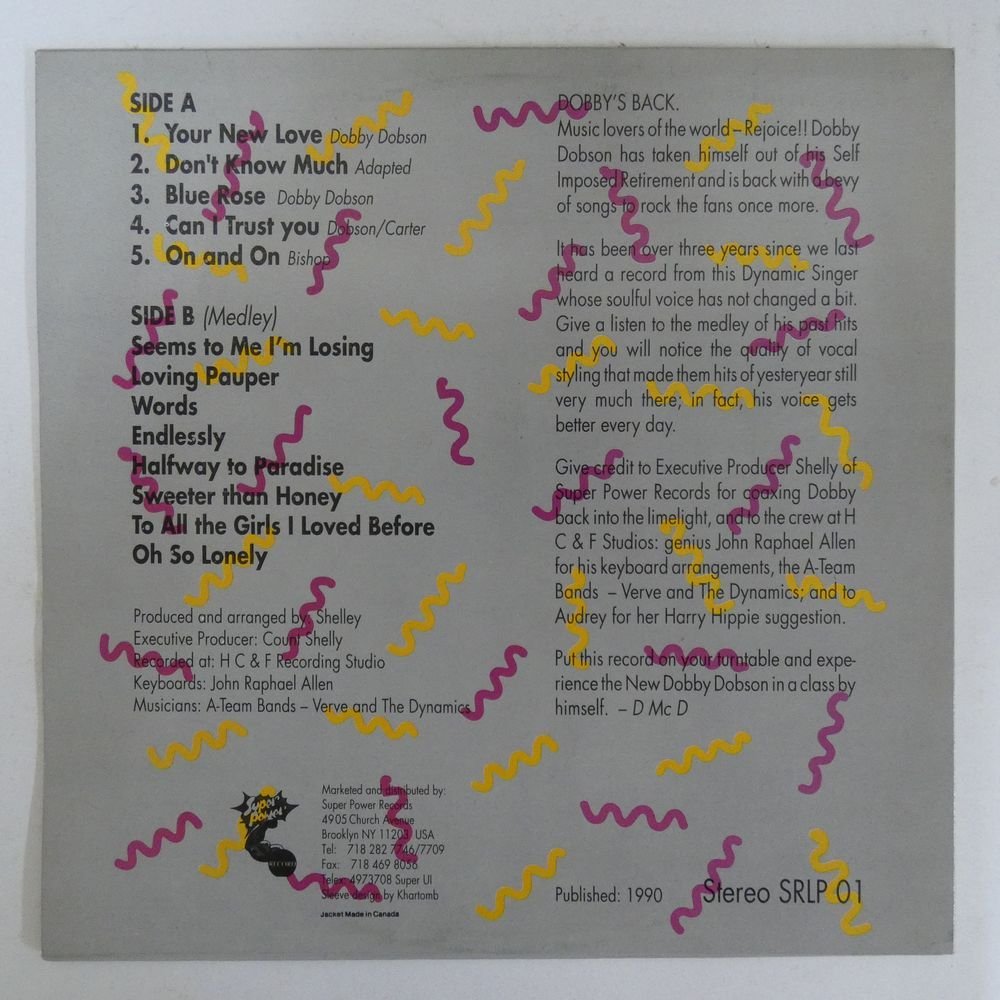 SIDE A
1. Your New Love Dobby Dobson
2. Don't Know Much Adapted
3. Blue Rose Dobby Dobson
4. Can I Trust you Dobson/Carter
5. On and On Bishop
SIDE B (Medley)
Seems to Me I'm Losing
Loving Pauper
Words
Endlessly
Halfway to Paradise
Sweeter than Honey
To All the Girls I Loved Before
Oh So Lonely
Produced and arranged by: Shelley
Executive Producer: Count Shelly
Recorded at: H C & F Recording Studio
Keyboards: John Raphael Allen
Musicians: A-Team Bands – Verve and The Dynamics
Super
Power
RECORD
Marketed and distributed by:
Super Power Records
4905 Church Avenue
Brooklyn NY 11203 USA
Tel: 718 282 7746/7709
Fax: 718 469 8056
Telex 4973708 Super UI
Sleeve design by Khartomb
Jacket Made in Canada
DOBBY'S BACK.
Music lovers of the world – Rejoice!! Dobby
Dobson has taken himself out of his Self
Imposed Retirement and is back with a bevy
of songs to rock the fans once more.
It has been over three years since we last
heard a record from this Dynamic Singer
whose soulful voice has not changed a bit.
Give a listen to the medley of his past hits
and you will notice the quality of vocal
styling that made them hits of yesteryear still
very much there; in fact, his voice gets
better every day.
Give credit to Executive Producer Shelly of
Super Power Records for coaxing Dobby
back into the limelight, and to the crew at H
C & F Studios: genius John Raphael Allen
for his keyboard arrangements, the A-Team
Bands – Verve and The Dynamics; and to
Audrey for her Harry Hippie suggestion.
Put this record on your turntable and expe-
rience the New Dobby Dobson in a class by
himself. – D Mc D
Published: 1990 Stereo SRLP 01